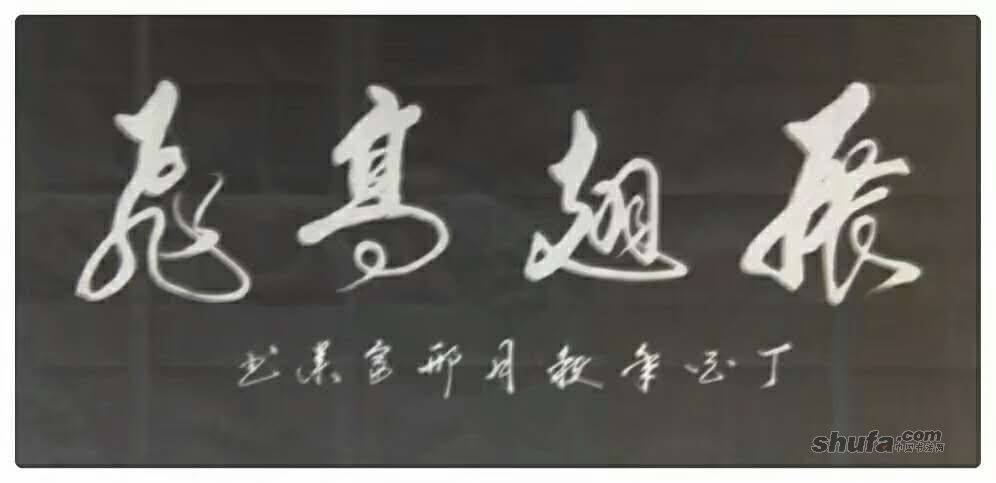 振翅高飛
丁酉年秋月邢富業书
shufa.com
中国书法网